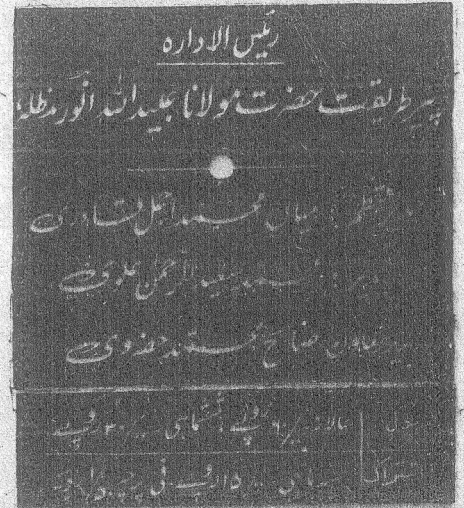 رئیس الادارہ
پیر طریقت حضرت مولانا عبیداللہ انور مدظلہ
مدیر منتظم : میاں محمد اجمل قادری
مدیر : محمد سعید الرحمٰن علوی
مدیر معاون صالح محمد حضروی
بدل سالانہ ۶۰ روپے ششماہی ۳۰ روپے
اشتراک سہ ماہی ۱۵ روپے فی پرچہ